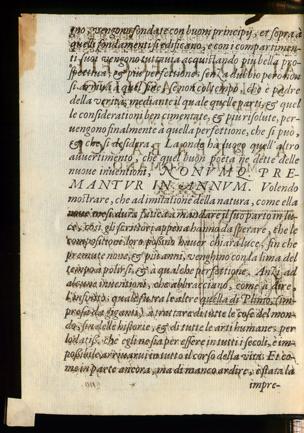 no, vengono fondate con buoni principij, et sopra à
quelli fondamenti si edificano, e con i compartimen
ti suoi vengono tuttauia acquistando più bella pro-
spettiua, & più perfettione, senza dubbio però non
si arriua à quel fine, se non col tempo, che è padre
della verità, mediante il quale quelle parti, & quel
le considerationi ben cimentate, & più risolute, per-
uengono finalmente à quella perfettione, che si può,
& che si desidera. La onde ha luogo quell'altro
auuertimento, che quel buon poeta ne dette delle
nuoue inuentioni, NONVMQ. PRE-
MANTVR IN ANNVM. Volendo
mostrare, che ad imitatione della natura, come ella
noue mesi dura fatica à mandare il suo parto in lu-
ce, così gli scrittori appena hanno da sperare, che le
compositione loro possin hauer chiara luce, fin che
premute noue, & più anni, venghino con la lima del
tempo à polirsi, & a qualche perfettione. Anzi ad
alcune inuentioni, che abbracciano, come à dire,
l'infinito, qual fu tra le altre quella di Plinio, (im-
presa da giganti,) à trattare di tutte le cose del mon-
do, sin delle historie, & di tutte le arti humane, per
lo dirsi, che egli nesia per essere in tutti i secoli, è im
possibile arriuarui in tutto il corso della vita. Et co-
me in parte ancora, ma di manco ardire, è stata la
impre-